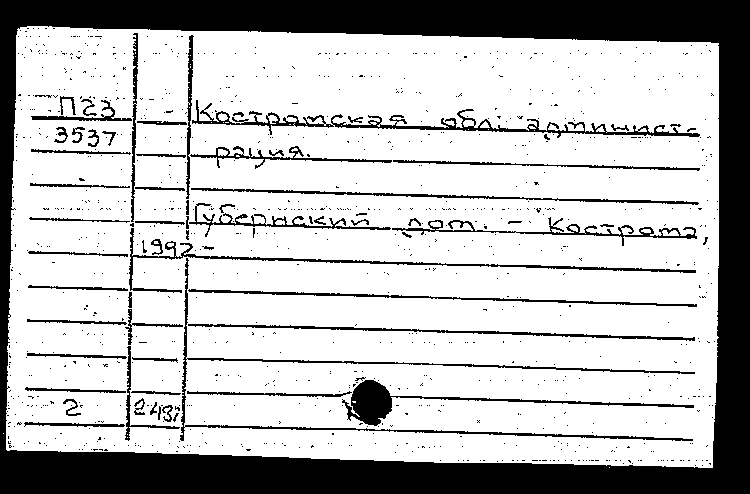 П23 - Костромская обл. админист-
3537 рация.
Губернский дом. - Кострома,
1992 -
2